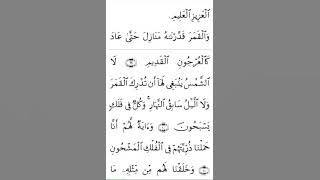 ٱلْعَزِيزِ ٱلْعَلِيمِ
وَٱلْقَمَرَ قَدَّرْنَـٰهُ مَنَازِلَ حَتَّىٰ عَادَ
كَٱلْعُرْجُونِ ٱلْقَدِيمِ ۝ لَا
ٱلشَّمْسُ يَنۢبَغِى لَهَآ أَن تُدْرِكَ ٱلْقَمَرَ
وَلَا ٱلَّيْلُ سَابِقُ ٱلنَّهَارِ ۚ وَكُلٌّ فِى فَلَكٍ
يَسْبَحُونَ ۝ وَءَايَةٌ لَّهُمْ أَنَّا
حَمَلْنَا ذُرِّيَّتَهُمْ فِى ٱلْفُلْكِ ٱلْمَشْحُونِ
۝ وَخَلَقْنَا لَهُم مِّن مِّثْلِهِۦ مَا